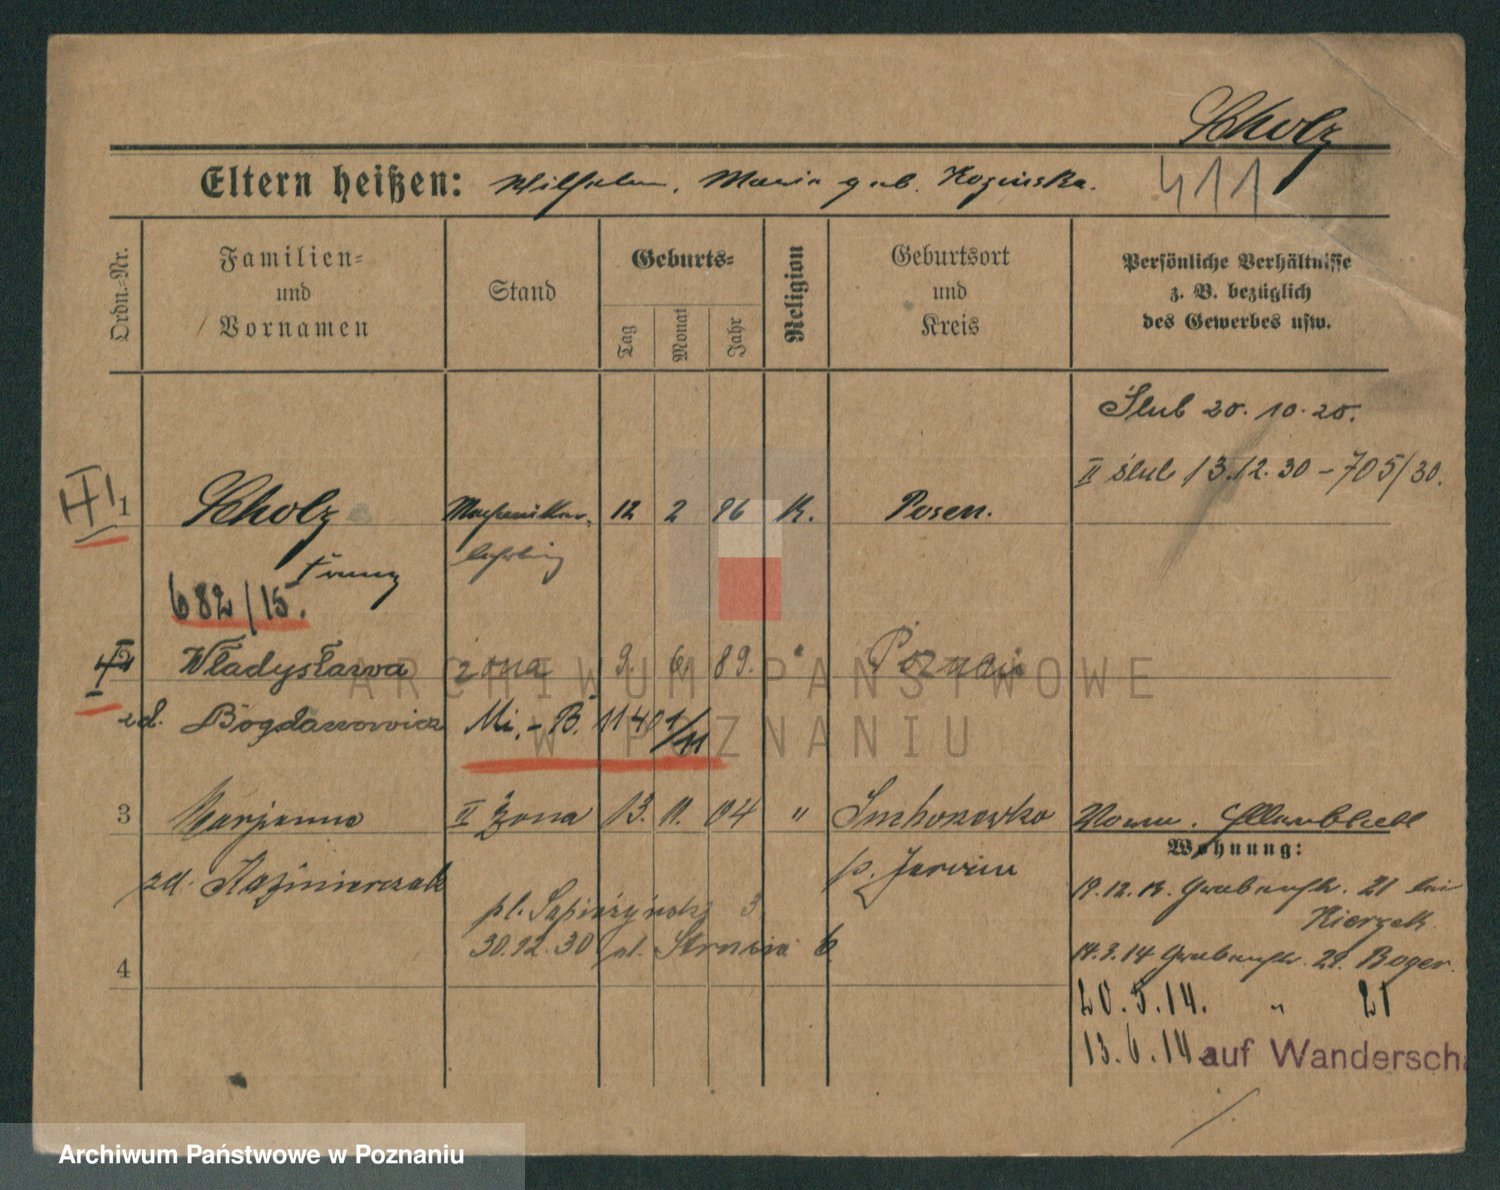 Scholz
Eltern heißen: Wilhelm, Maria geb. Kozinska.
411
Ordn.-Nr.
Familien-
und
Vornamen
Stand
Geburts-
Tag
Monat
Jahr
Religion
Geburtsort
und
Kreis
Persönliche Verhältnisse
z. B. bezüglich
des Gewerbes usw.
Ślub 20.10.20.
II ślub 13.12.30 - 705/30.
1 Scholz 12 2 96 K. Posen.
lehrling
Franz
682/15.
2 Władysława żona 9. 6. 89. " Poznań
zd. Bogdanowicz Mi.-B. 1140 1/11
3 Marjanna II żona 13. 11. 04 " 
zd. Kazimierczak
Wohnung:
pl. Sapieżyński 3
30.12.30 6
4
14.3.14 21. Roger.
20.5.14. " 21
13.6.14. auf Wandersch
ARCHIWUM PAŃSTWOWE
W POZNANIU
Archiwum Państwowe w Poznaniu